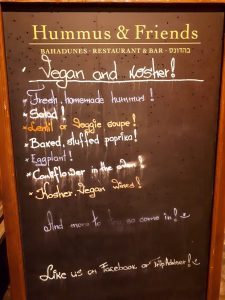 Hummus & Friends
BAHADUNES · RESTAURANT & BAR · בהדונס
Vegan and Kosher!
* Fresh, homemade hummus!
* Salad!
* Lentil or Veggie soupe!
* Baked, stuffed paprika!
* Eggplant!
* Cauliflower in the oven!
* Kosher, Vegan wines!
And more to try so come in!
Like us on Facebook or TripAdvisor!